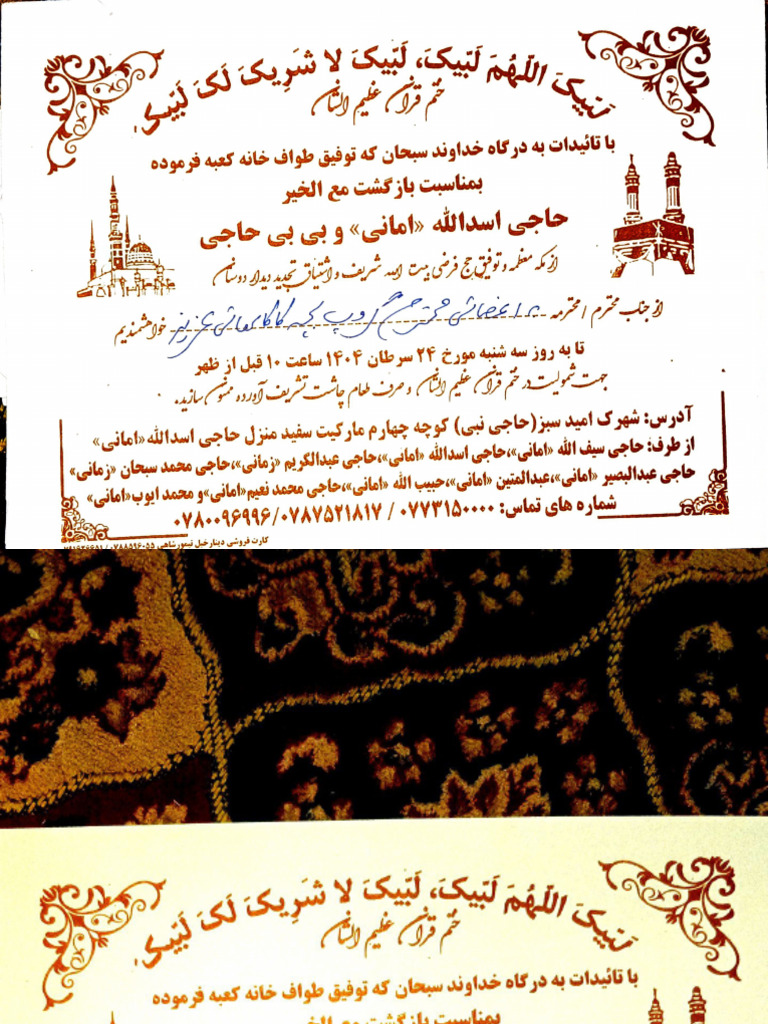 لَبّیکَ اللّهُمَ لَبّیکَ، لَبّیکَ لا شَرِیکَ لَکَ لَبّیکَ،
ختم قرآن عظیم الشان
با تائیدات به درگاه خداوند سبحان که توفیق طواف خانه کعبه فرموده
بمناسبت بازگشت مع الخیر
حاجی اسدالله «امانی» و بی بی حاجی
از مکه معظمه و توفیق حج فرضی بیت الله شریف و اشتیاق تجدید دیدار دوستان
از جناب محترم / محترمه اعضای محترم گروپ بچه کاکا های عزیز خواهشمندیم
تا به روز سه شنبه مورخ ۲۴ سرطان ۱۴۰۴ ساعت ۱۰ قبل از ظهر
جهت شمولیت در ختم قرآن عظیم الشان و صرف طعام چاشت تشریف آورده ممنون سازید.
آدرس: شهرک امید سبز(حاجی نبی) کوچه چهارم مارکیت سفید منزل حاجی اسدالله «امانی»
از طرف: حاجی سیف الله «امانی»، حاجی اسدالله «امانی»، حاجی عبدالکریم «زمانی»، حاجی محمد سبحان «زمانی»
حاجی عبدالبصیر «امانی»، عبدالمتین «امانی»، حبیب الله «امانی»، حاجی محمد نعیم «امانی» و محمد ایوب «امانی»
شماره های تماس: ۰۷۷۳۱۵۰۰۰۰ / ۰۷۸۷۵۲۱۸۱۷/ ۰۷۸۰۰۹۶۹۹۶
کارت فروشی دینارخیل تیمورشاهی ۰۷۸۸۵۹۶۰۵۵
لَبّیکَ اللّهُمَ لَبّیکَ، لَبّیکَ لا شَرِیکَ لَکَ لَبّیکَ،
ختم قرآن عظیم الشان
با تائیدات به درگاه خداوند سبحان که توفیق طواف خانه کعبه فرموده
بمناسبت بازگشت مع الخیر